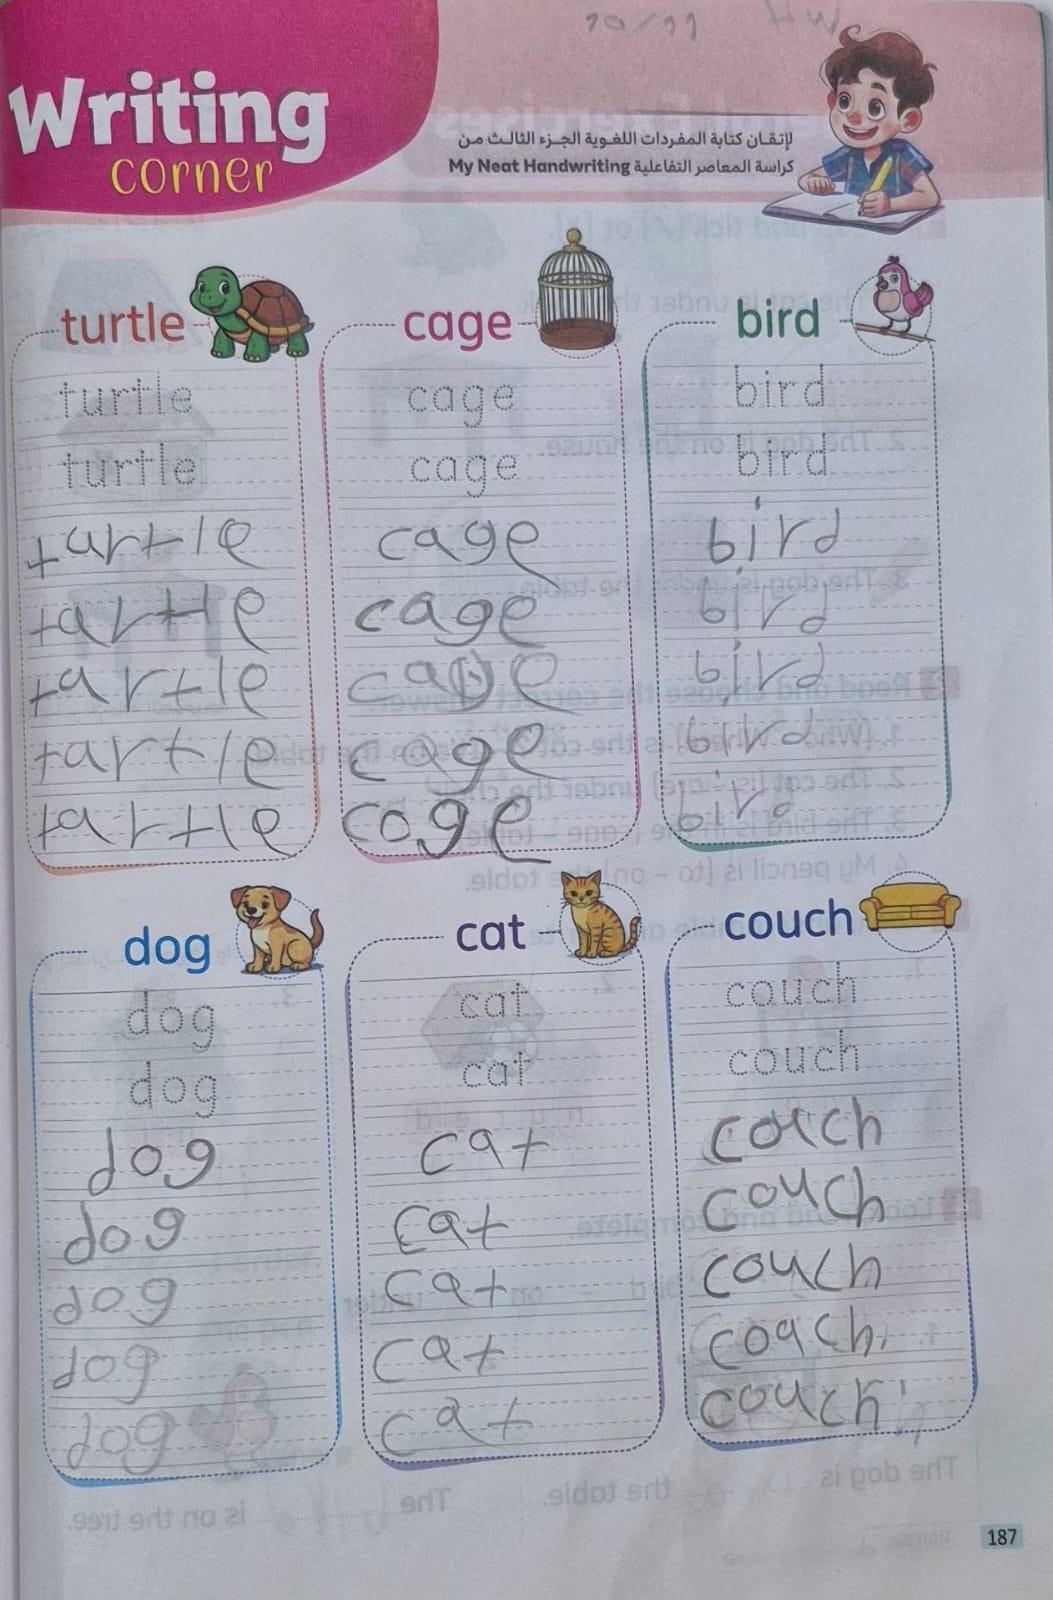 Writing
corner
لإتقان كتابة المفردات اللغوية الجزء الثالث من
كراسة المعاصر التفاعلية My Neat Handwriting
turtle cage bird
turtle cage bird
turtle cage bird
tartle cage bird
tartle cage bird
tartle cage bird
tartle cage bird
tartle coge bird
dog cat couch
dog cat couch
dog cat couch
dog cat coach
dog cat couch
dog cat couch
dog cat coach
dog cat couch
187